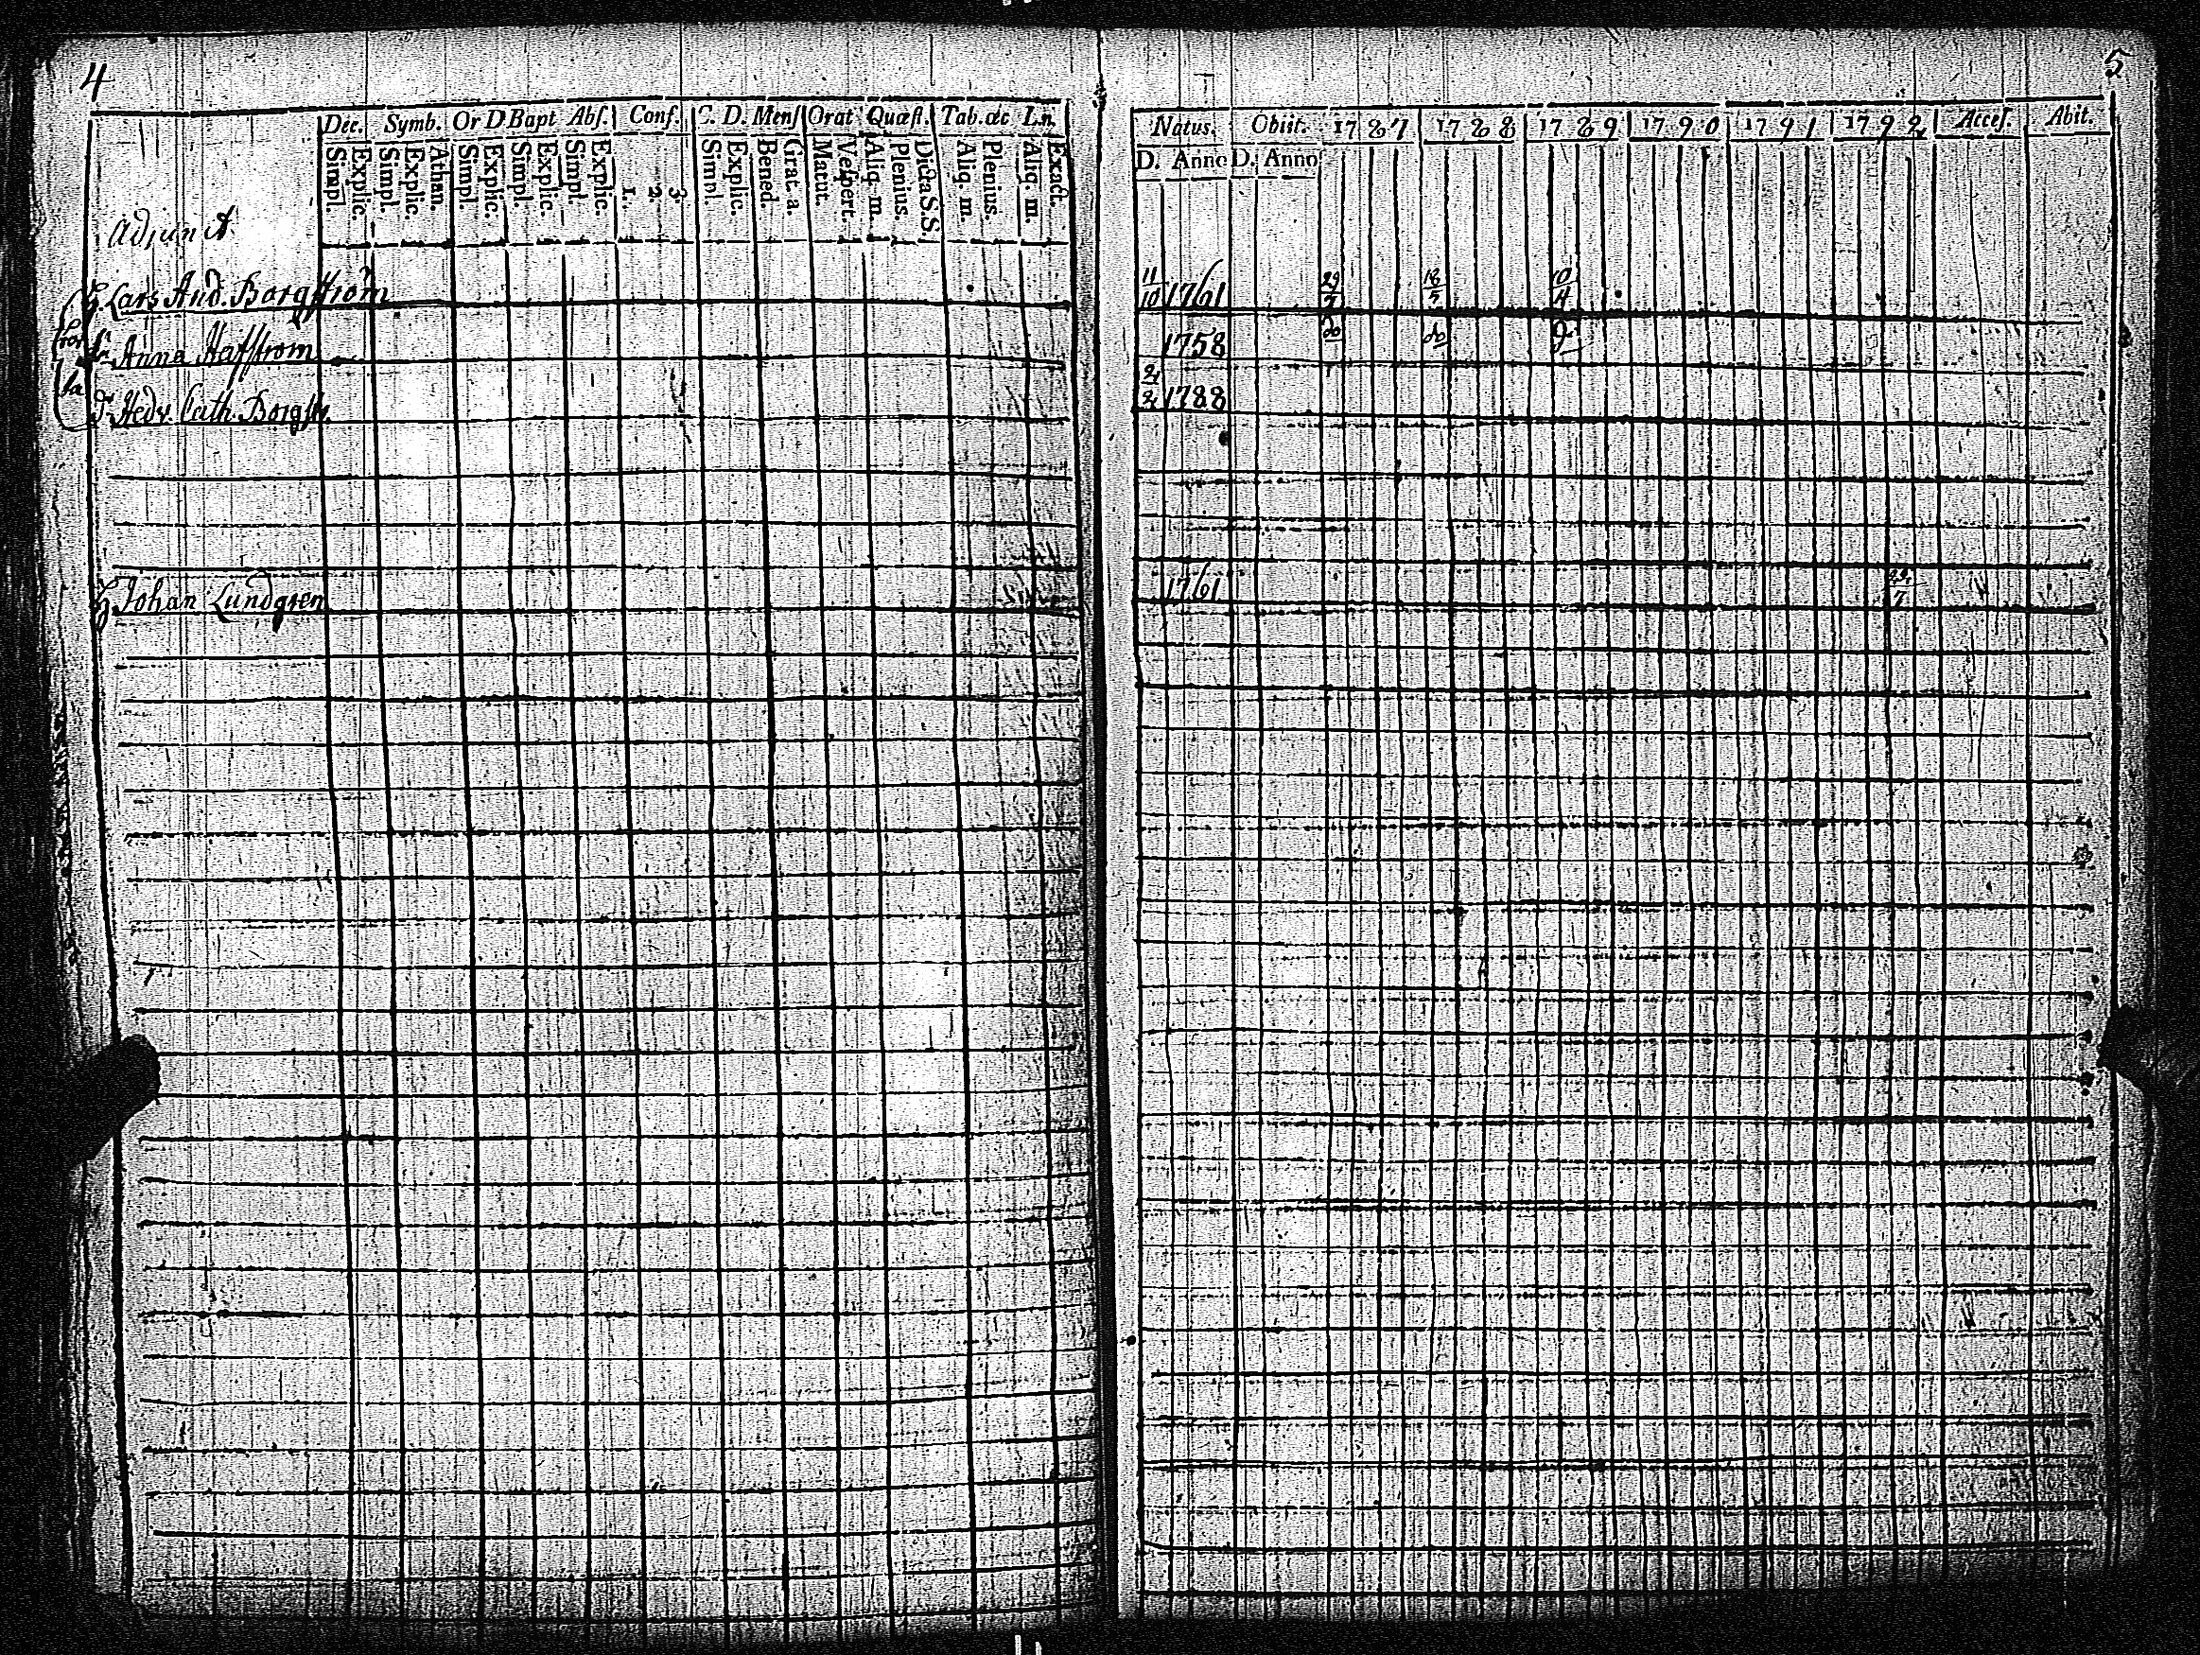 4
Dec. Symb. Or D Bapt Abſ. Conf. C. D. Menſ Orat Quæſt. Tab. œc Ln.
Simpl. Explic. Simpl. Explic. Athan. Simpl. Explic. Simpl. Explic. Simpl. Explic. 1. 2. 3. Simpl. Explic. Bened. Grat. a. Matut. Veſpert. Aliq. m. Plenius. Dicta S.S. Aliq. m. Plenius. Aliq. m. Exact.
Adjunct
H. Lars And. Borgſtrom
Anna Hafſtrom
Hedv. Cath. Borgſtr.
Johan Lundgren
5
Natus. Obiit. 1787 1788 1789 1790 1791 1792 Acceſ. Abit.
D. Anno D. Anno
11/10 1761 29/7 18/5 10/4
1758 do do
2/2 1788
1761